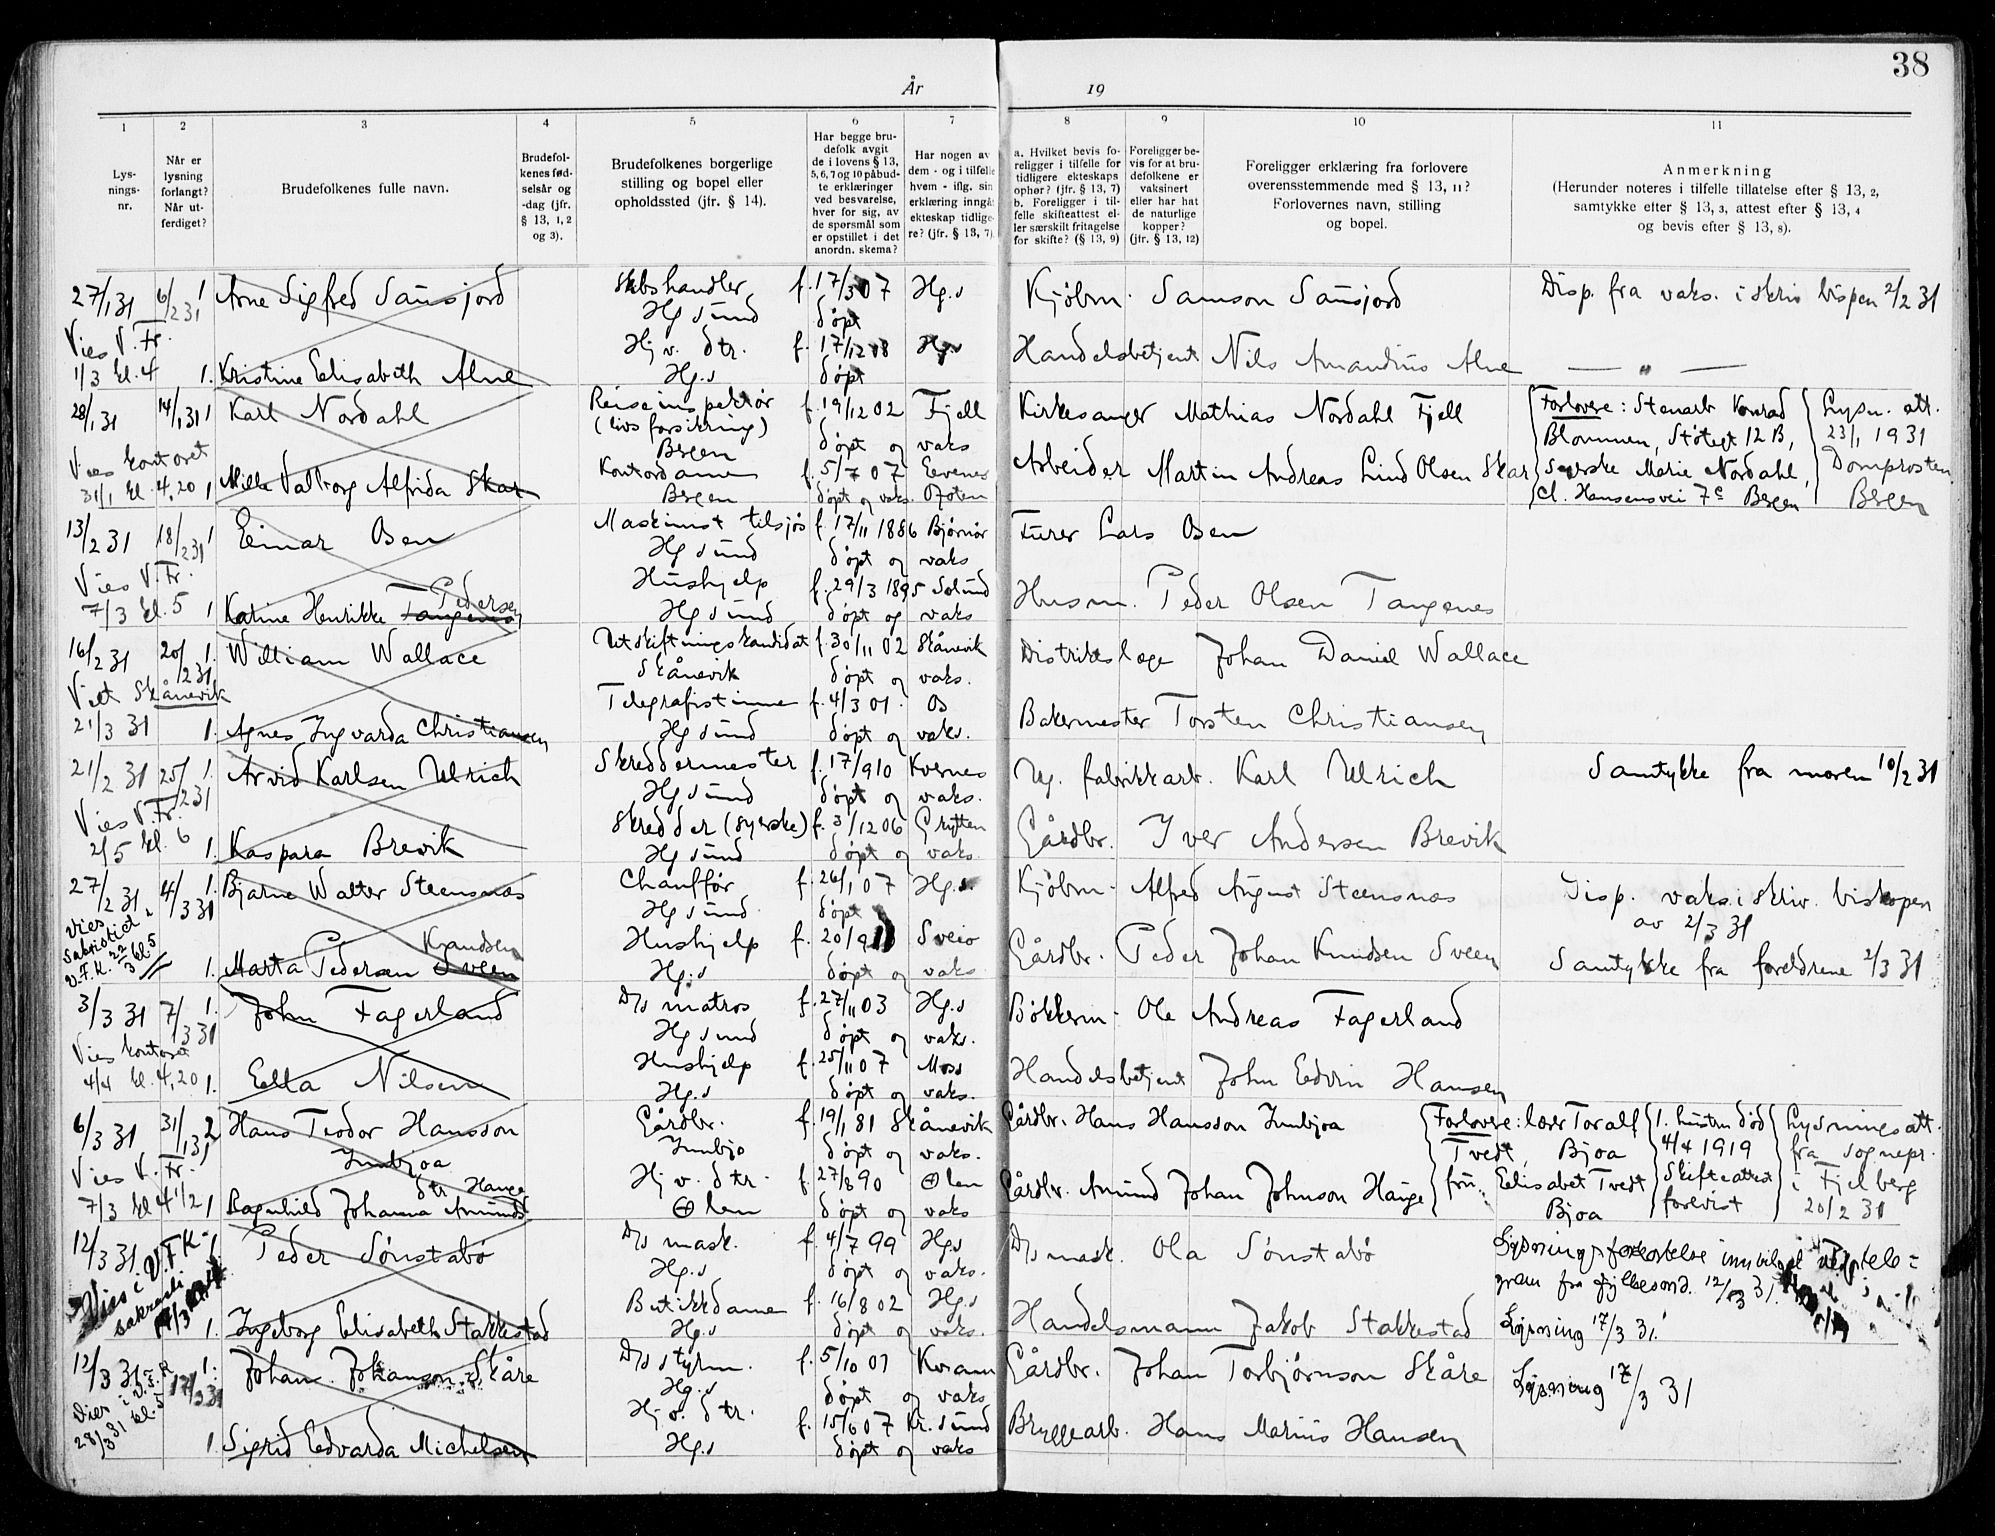 38
År 19
1
2
3
4
5
6
7
8
9
10
11
Lys-
nings-
nr.
Når er
lysning
forlangt?
Når ut-
ferdiget?
Brudefolkenes fulle navn.
Brudefol-
kenes fød-
selsår og
-dag (jfr.
§ 13, 1, 2
og 3).
Brudefolkenes borgerlige
stilling og bopel eller
opholdssted (jfr. § 14).
Har begge bru-
defolk avgit
de i lovens § 13,
5, 6, 7 og 10 påbud-
te erklæringer
ved besvarelse,
hver for sig, av
de spørsmål som
er opstillet i det
anordn. skema?
Har nogen av
dem - og i tilfelle
hvem - iflg. sin
erklæring inngå
ekteskap tidlige-
re? (jfr. § 13, 7)
a. Hvilket bevis fo-
religger i tilfelle for
tidligere ekteskaps
ophør? (jfr. § 13, 7)
b. Foreligger i til-
felle skifteattest el-
ler særskilt fritagelse
for skifte? (§ 13, 9)
Foreligger be-
vis for at bru-
defolkene er
vaksinert
eller har hat
de naturlige
kopper?
(jfr. § 13, 12)
Foreligger erklæring fra forlovere
overensstemmende med § 13, 11?
Forlovernes navn, stilling
og bopel.
Anmerkning
(Herunder noteres i tilfelle tillatelse efter § 13, 2,
samtykke efter § 13, 3, attest efter § 13, 4
og bevis efter § 13, 8).
27/1 31 6/2 31 1 Arne Sigfred Sausjord Skbshandler f. 17/3 07 Hg.s Kjøbm. Samson Sausjord Disp. fra vaks. i skriv bispen 2/2 31
Hgsund døpt
Vies V. Fr. Hj v. dtr. f. 17/12 08 Hg.s Handelsbetjent Nils Amandius Alne — " —
1/3 kl. 4 1. Kristine Elisabeth Alne Hg.s døpt
28/1 31 14/1 31 1 Karl Nordahl Reiseinspektør f. 19/12 02 Fjell Kirkesanger Mathias Nordahl Fjell Forlovere: Stenarb Konrad Lysn. att.
(livsforsikring) døpt og vaks Blommen, Støtegt 12 B, 23/1 1931
Vies kontoret Bergen
31/1 kl. 4,20 1 Mille Valborg Alfrida Skar Kontordame f. 5/7 07 Evenes Arbeider Martin Andreas Lind Olsen Skar Syerske Marie Nordahl, Domprosten
Bergen døpt og vaks. Ofoten Cl. Hansensvei 7c Bergen Bergen
13/2 31 18/2 31 1 Einar Osen Maskinist tilsjøs f. 17/11 1886 Bjørnør Furer Lars Osen
Hgsund døpt og vaks
Vies V. Fr. Pedersen Hushjelp f. 29/3 1895 Solund Husm. Peder Olsen Tangenes
7/3 kl. 5 1 Karine Henrikke Tangenes Hgsund døpt og vaks
16/2 31 20/2 31 1. William Wallace Utskiftningskandidat f. 30/11 02 Skånevik Distriktslæge Johan Daniel Wallace
Skånevik døpt og vaks.
Viet Skånevik Telegrafistinne f. 4/3 01. Os Bakermester Torsten Christiansen
21/3 31 1. Agnes Ingvarda Christiansen Hgsund døpt og vaks.
21/2 31 25/2 31 1. Arvid Karlsen Ulrich Skreddermester f. 17/9 10 Kvernes Ug. fabrikkarb. Karl Ulrich Samtykke fra moren 10/2 31
Hgsund døpt og vaks.
Vies V. Fr. Skredder (syerske) f. 3/12 06 Grytten Gårdbr. Iver Andersen Brevik
2/5 kl. 6 1. Kaspara Brevik Hgsund døpt og vaks.
27/2 31 4/3 31 1. Bjarne Walter Steensnæs Chauffør f. 26/1 07 Hg.s. Kjøbm. Alfred August Steensnæs Disp. vaks. i skriv. biskopen
Hgsund. døpt av 2/3 31
Vies Sakristiet V.F.K. 22/3 kl. 5 Knudsen Hushjelp f. 20/9 Sveio Gårdbr. Peder Johan Knudsen Sveen Samtykke fra foreldrene 2/3 31
1. Marta Pedersen Sveen Hg.s døpt og vaks
3/3 31 7/3 31 1. John Fagerland D/s matros f. 27/11 03 Hg.s Bøkkerm. Ole Andreas Fagerland
Hgsund døpt og vaks.
Vies kontoret Hushjelp f. 25/11 07 Moss Handelsbetjent John Edvin Hansen
4/4 kl. 4,20 1. Ella Nilsen Hg.s døpt og vaks.
6/3 31 31/1 31 2 Hans Teodor Hansson Gårdbr. f. 19/1 81 Skånevik Gårdbr. Hans Hansson Innbjoa Forlovere: lærer Toralf 1. hustru død Lysningsatt.
Innbjoa Innbjo døpt og vaks. Tvedt, Bjoa 4/4 1919 fra sognepr.
Vies V. Fr. dtr. Hauge Hj v. dtr. f. 27/8 90 Ølen Gårdbr. Amund Johan Johnson Hauge fru Elisabet Tvedt Skifteattest i Fjelberg
7/3 kl 4 1/2 1 Ragnhild Johanna Amunds Ølen døpt og vaks Bjoa forevist 20/2 31
12/3 31 Peder Sønstabø D/s mask. f. 4/7 99 Hg.s D/s mask. Ola Sønstabø Lysningsforkortelse innvilget ved tele-
Hg.s døpt og vaks. gram fra fylkesmd. 12/3 31.
Vies i V.F.K. sakristi Butikkdame f. 16/8 02 Hg.s Handelsmann Jakob Stakkestad Lysning 17/3 31.
1. Ingeborg Elisabeth Stakkestad Hg.s døpt og vaks.
12/3 31 17/3 31 1. Johan Johanson Skåre D/s styrm. f. 5/10 01 Kvam Gårdbr. Johan Torbjørnson Skåre Lysning 17/3 31
Hg.s døpt og vaks
Vies i V.F.K 28/3 31 kl. 5 Hj v. dtr. f. 15/6 07 Kr.sund Bryggearb. Hans Marius Hansen
1. Sigrid Edvarda Michelsen Hg.s døpt og vaks